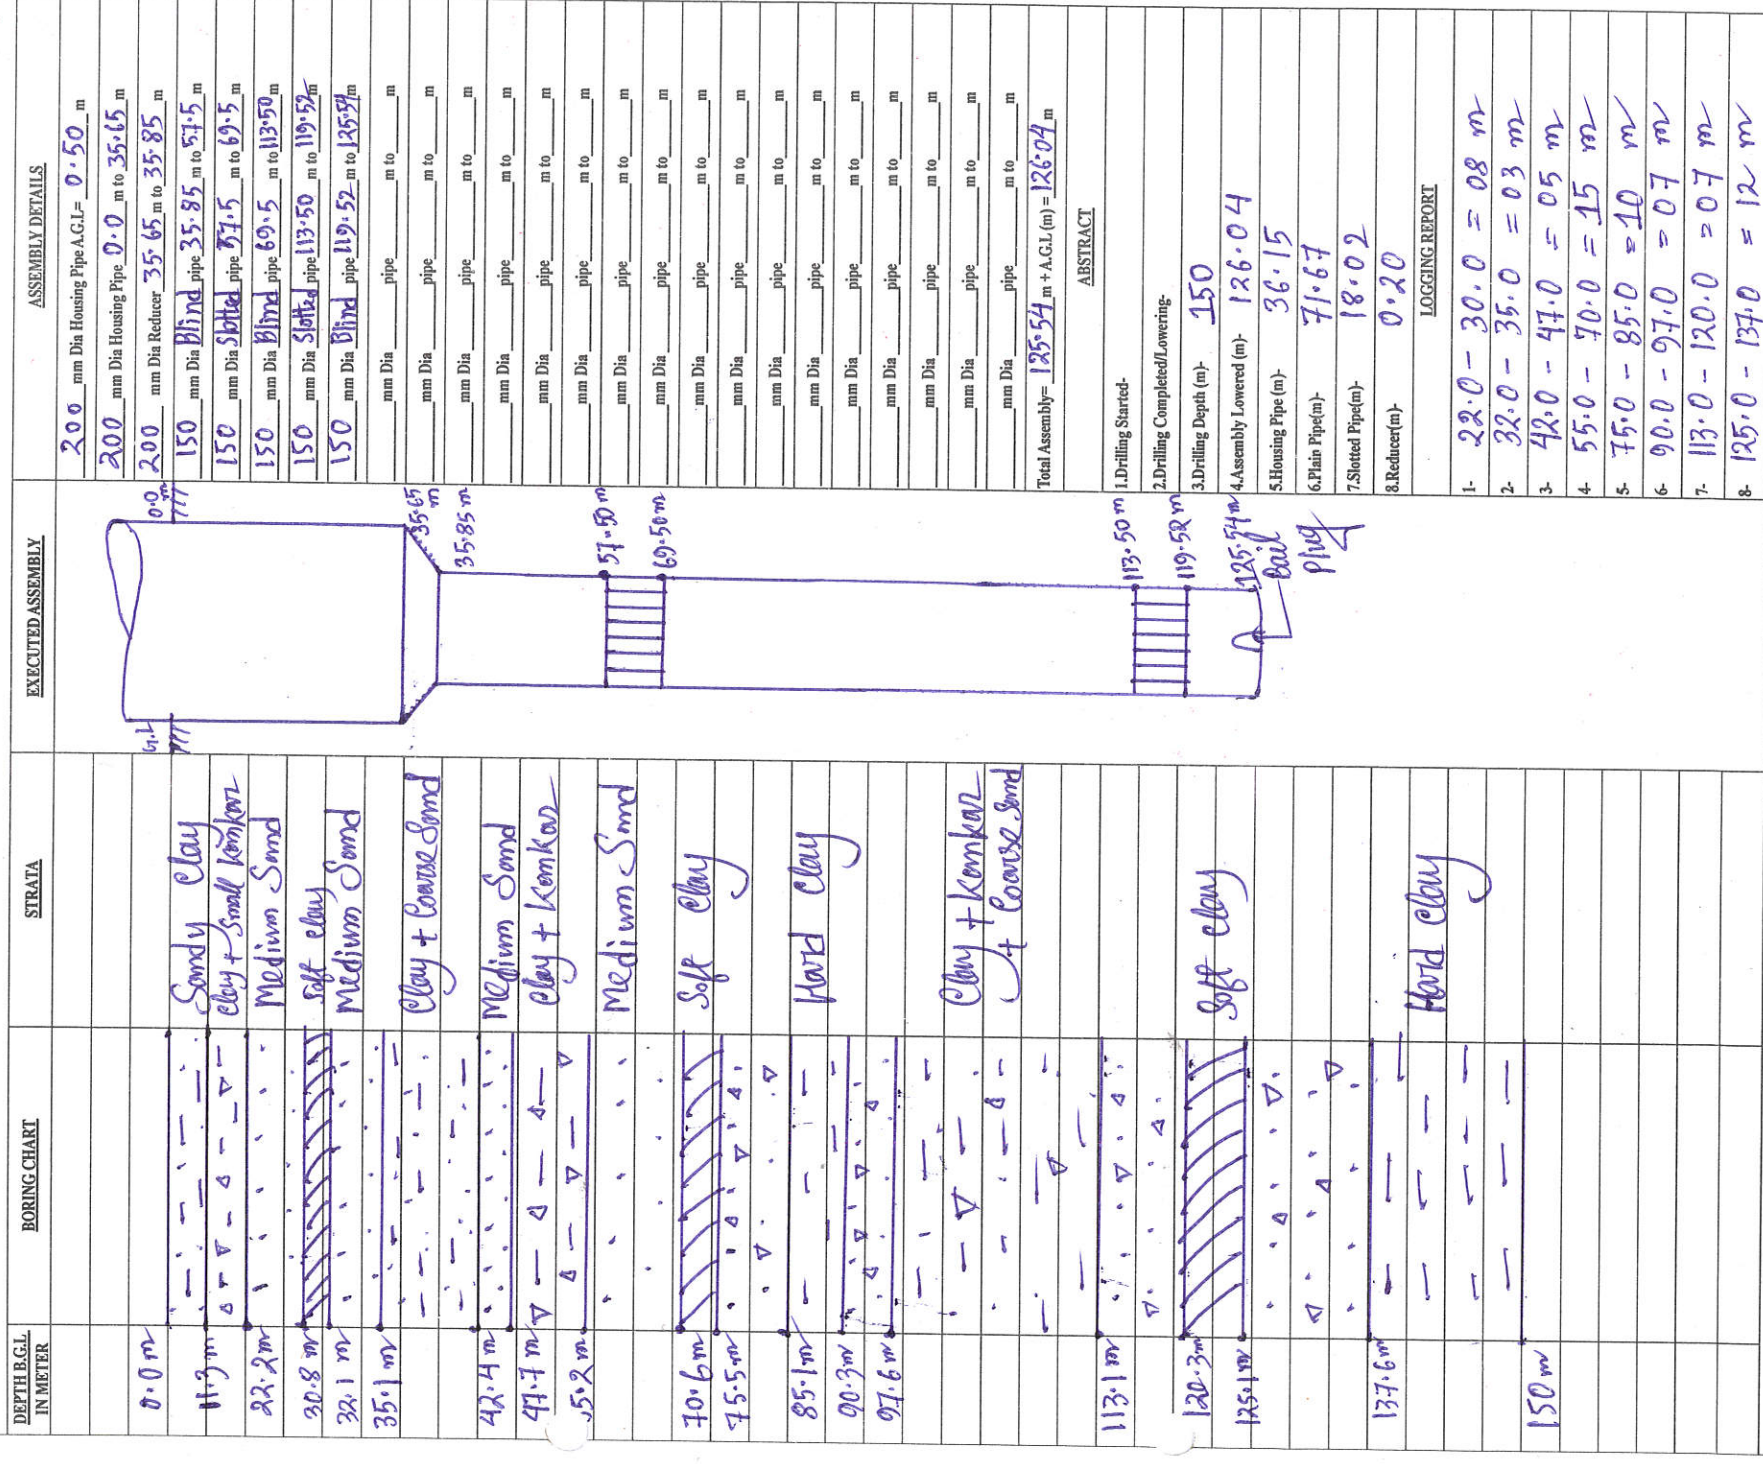 DEPTH B.G.L
IN METER
0.0 m
11.3 m
22.2 m
30.8 m
32.1 m
35.1 m
42.4 m
47.7 m
55.2 m
70.6 m
75.5 m
85.1 m
90.3 m
97.6 m
113.1 m
120.3 m
125.1 m
137.6 m
150 m
BORING CHART
STRATA
Sandy Clay
Clay + Small Kankar
Medium Sand
Soft Clay
Medium Sand
Clay + Coarse Sand
Medium Sand
Clay + Kankar
Medium Sand
Soft Clay
Hard Clay
Clay + Kankar
+ Coarse Sand
Soft Clay
Hard Clay
EXECUTED ASSEMBLY
G.L
0.0 m
35.65 m
35.85 m
57.50 m
69.50 m
113.50 m
119.52 m
125.54 m
Bail
Plug
ASSEMBLY DETAILS
200 mm Dia Housing Pipe A.G.L= 0.50 m
200 mm Dia Housing Pipe 0.0 m to 35.65 m
200 mm Dia Reducer 35.65 m to 35.85 m
150 mm Dia Blind pipe 35.85 m to 57.5 m
150 mm Dia Slotted pipe 57.5 m to 69.5 m
150 mm Dia Blind pipe 69.5 m to 113.50 m
150 mm Dia Slotted pipe 113.50 m to 119.52 m
150 mm Dia Blind pipe 119.52 m to 125.54 m
mm Dia pipe m to m
mm Dia pipe m to m
mm Dia pipe m to m
mm Dia pipe m to m
mm Dia pipe m to m
mm Dia pipe m to m
mm Dia pipe m to m
mm Dia pipe m to m
mm Dia pipe m to m
mm Dia pipe m to m
mm Dia pipe m to m
mm Dia pipe m to m
mm Dia pipe m to m
mm Dia pipe m to m
mm Dia pipe m to m
mm Dia pipe m to m
mm Dia pipe m to m
Total Assembly= 125.54 m + A.G.L (m) = 126.04 m
ABSTRACT
1.Drilling Started-
2.Drilling Completed/Lowering-
3.Drilling Depth (m)- 150
4.Assembly Lowered (m)- 126.04
5.Housing Pipe (m)- 36.15
6.Plain Pipe(m)- 71.67
7.Slotted Pipe(m)- 18.02
8.Reducer(m)- 0.20
LOGGING REPORT
1- 22.0 - 30.0 = 08 m
2- 32.0 - 35.0 = 03 m
3- 42.0 - 47.0 = 05 m
4- 55.0 - 70.0 = 15 m
5- 75.0 - 85.0 = 10 m
6- 90.0 - 97.0 = 07 m
7- 113.0 - 120.0 = 07 m
8- 125.0 - 137.0 = 12 m